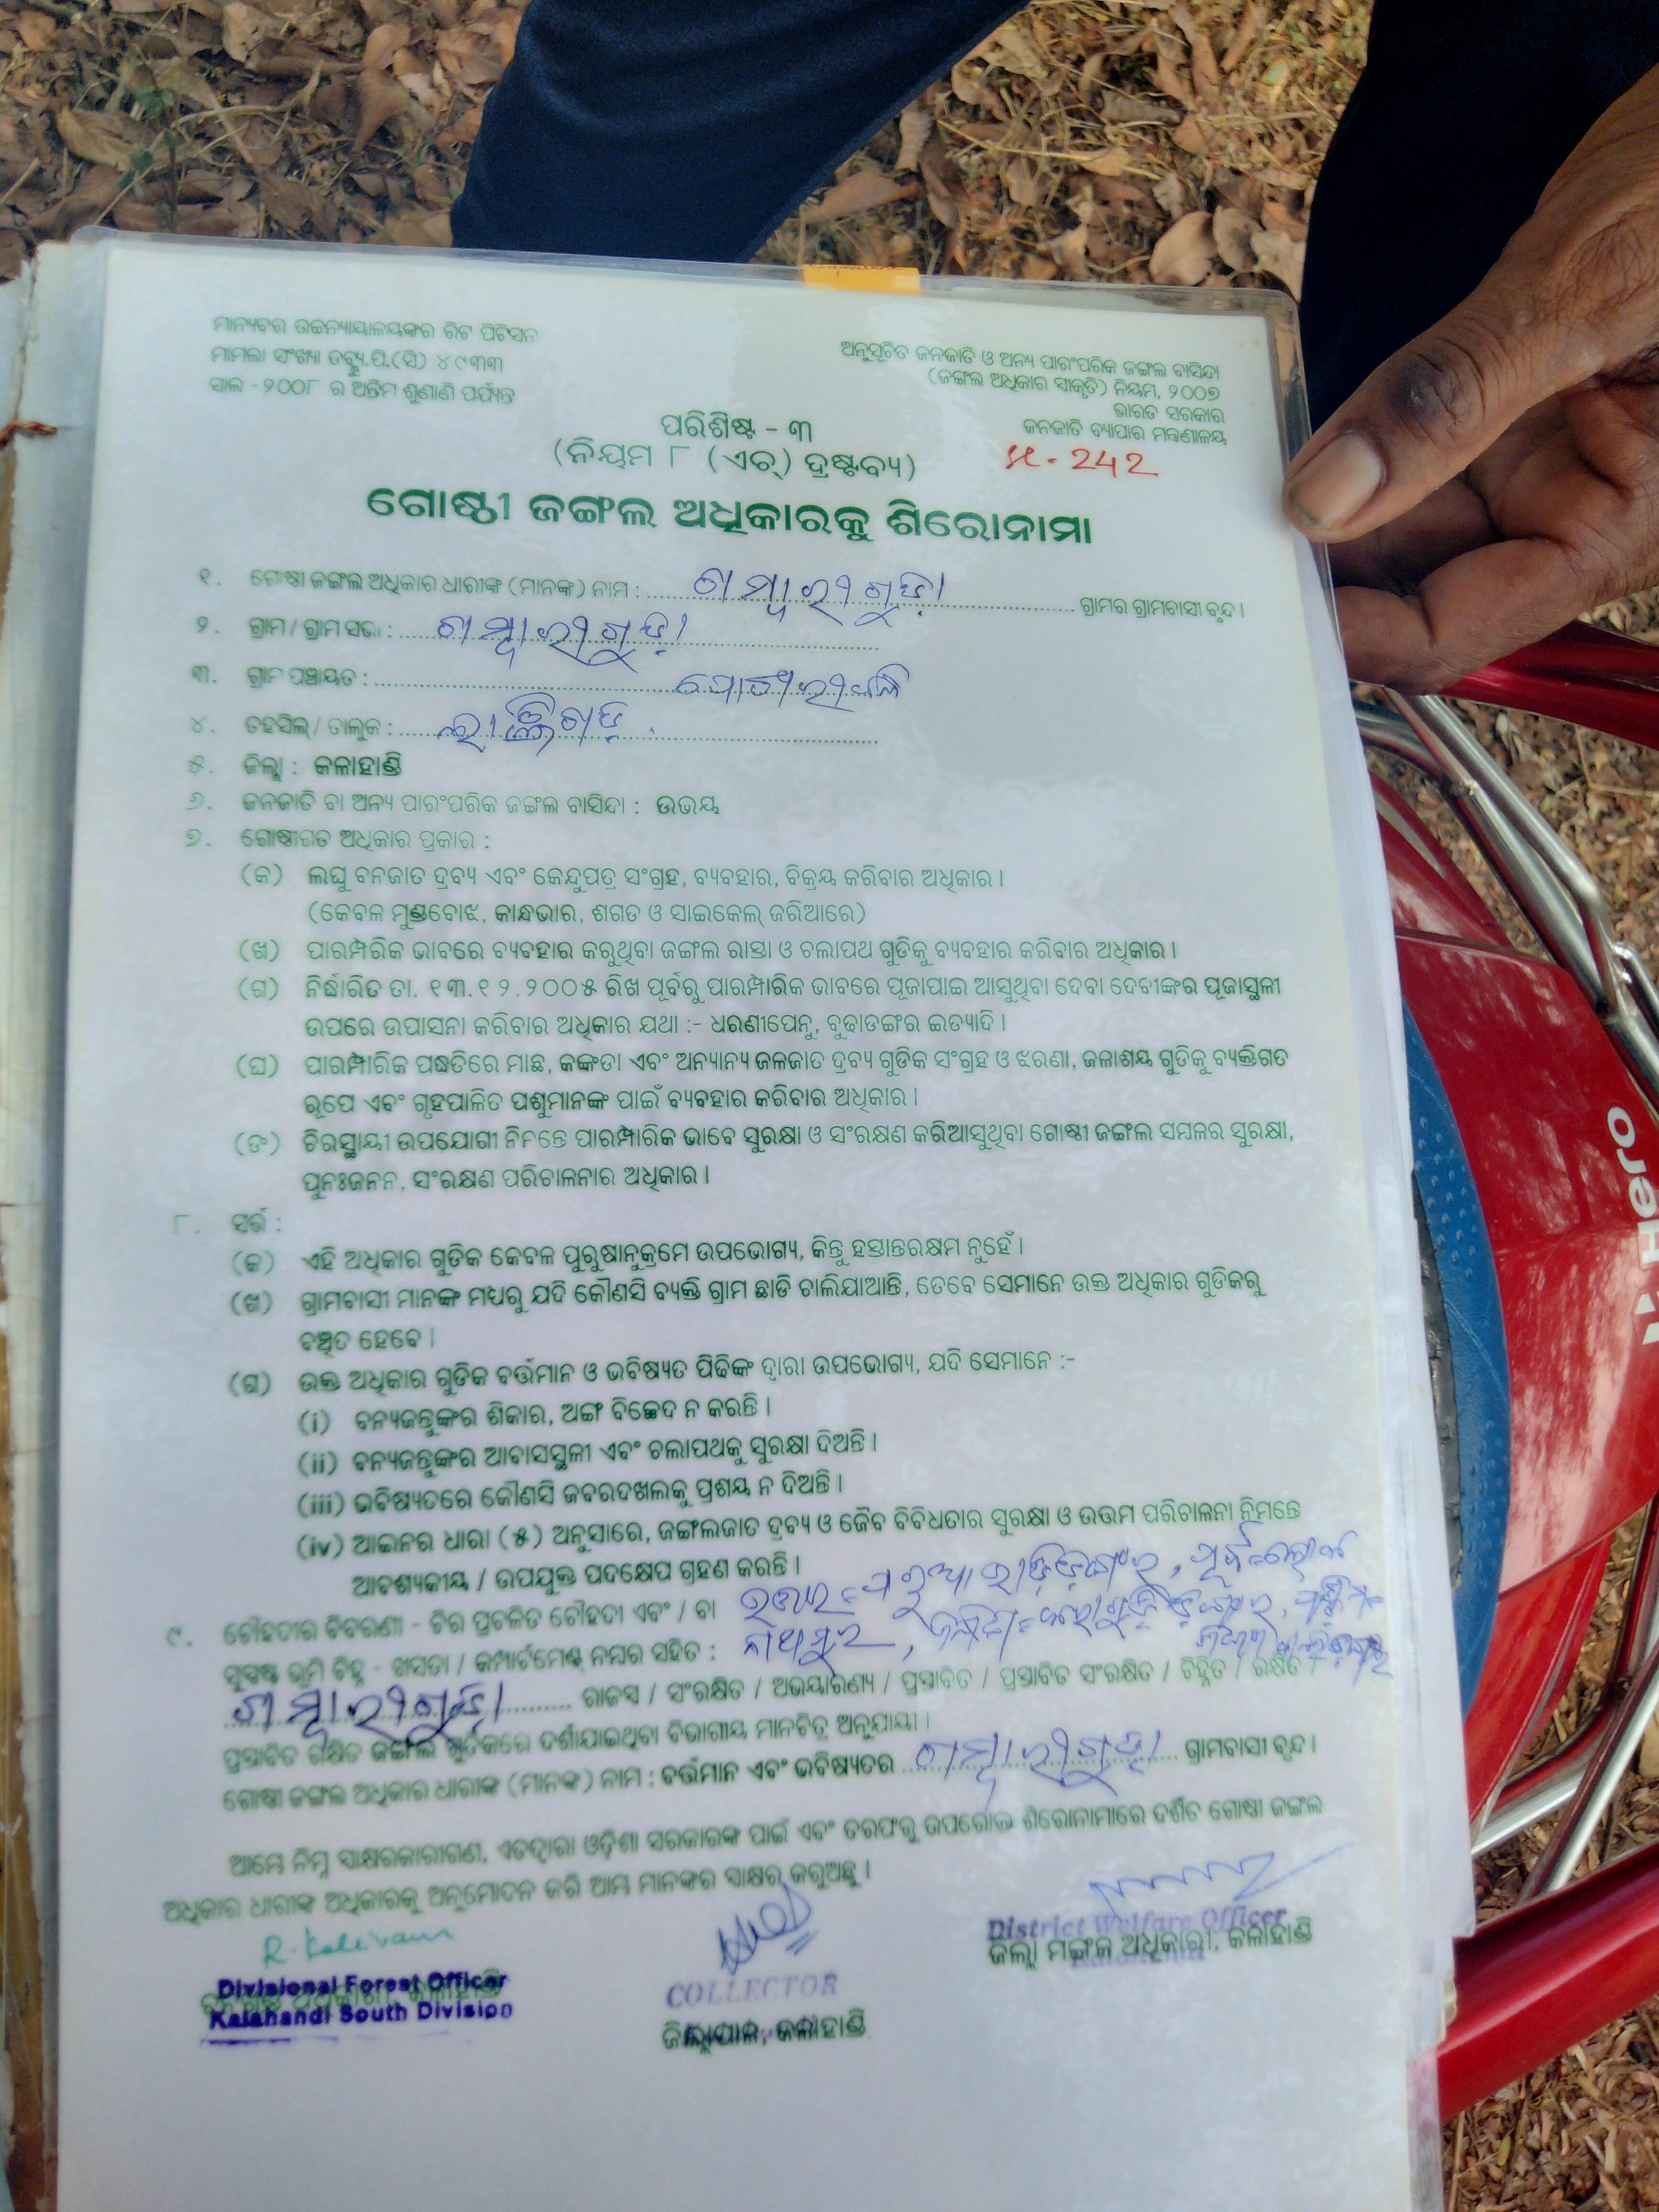 ମାନ୍ୟବର ଉଚ୍ଚନ୍ୟାୟାଳୟଙ୍କର ରିଟ ପିଟିସନ
ମାମଲା ସଂଖ୍ୟା ଡବ୍ଲ୍ୟୁ.ପି.(ସି) ୪୯୩୩
ସାଲ -୨୦୦୮ ର ଅନ୍ତିମ ଶୁଣାଣି ପର୍ଯ୍ୟନ୍ତ
ଅନୁସୂଚିତ ଜନଜାତି ଓ ଅନ୍ୟ ପାରଂପରିକ ଜଙ୍ଗଲ ବାସିନ୍ଦା
(ଜଙ୍ଗଲ ଅଧିକାର ସ୍ୱୀକୃତି) ନିୟମ, ୨୦୦୭
ଭାରତ ସରକାର
ଜନଜାତି ବ୍ୟାପାର ମନ୍ତ୍ରଣାଳୟ
ପରିଶିଷ୍ଟ - ୩
(ନିୟମ ୮ (ଏଚ୍) ଦ୍ରଷ୍ଟବ୍ୟ)
242
ଗୋଷ୍ଠୀ ଜଙ୍ଗଲ ଅଧିକାରକୁ ଶିରୋନାମା
୧. ଗୋଷ୍ଠୀ ଜଙ୍ଗଲ ଅଧିକାର ଧାରୀଙ୍କ (ମାନଙ୍କ) ନାମ : ଗମ୍ଭାରୀଗୁଡ଼ା ଗ୍ରାମର ଗ୍ରାମବାସୀ ବୃନ୍ଦ।
୨. ଗ୍ରାମ / ଗ୍ରାମ ସଭା : ଗମ୍ଭାରୀଗୁଡ଼ା
୩. ଗ୍ରାମ ପଞ୍ଚାୟତ :
୪. ତହସିଲ୍ / ତାଲୁକ : ଲାଞ୍ଜିଗଡ଼
୫. ଜିଲ୍ଲା : କଳାହାଣ୍ଡି
୬. ଜନଜାତି ବା ଅନ୍ୟ ପାରଂପରିକ ଜଙ୍ଗଲ ବାସିନ୍ଦା : ଉଭୟ
୭. ଗୋଷ୍ଠୀଗତ ଅଧିକାର ପ୍ରକାର :
(କ) ଲଘୁ ବନଜାତ ଦ୍ରବ୍ୟ ଏବଂ କେନ୍ଦୁପତ୍ର ସଂଗ୍ରହ, ବ୍ୟବହାର, ବିକ୍ରୟ କରିବାର ଅଧିକାର।
(କେବଳ ମୁଣ୍ଡବୋଝ, କାନ୍ଧଭାର, ଶଗଡ ଓ ସାଇକେଲ୍ ଜରିଆରେ)
(ଖ) ପାରମ୍ପରିକ ଭାବରେ ବ୍ୟବହାର କରୁଥିବା ଜଙ୍ଗଲ ରାସ୍ତା ଓ ଚଲାପଥ ଗୁଡିକୁ ବ୍ୟବହାର କରିବାର ଅଧିକାର।
(ଗ) ନିର୍ଦ୍ଧାରିତ ତା. ୧୩.୧୨.୨୦୦୫ ରିଖ ପୂର୍ବରୁ ପାରମ୍ପାରିକ ଭାବରେ ପୂଜାପାଇ ଆସୁଥିବା ଦେବା ଦେବୀଙ୍କର ପୂଜାସ୍ଥଳୀ
ଉପରେ ଉପାସନା କରିବାର ଅଧିକାର ଯଥା :- ଧରଣୀପେନୁ, ବୁଢାଡଙ୍ଗର ଇତ୍ୟାଦି।
(ଘ) ପାରମ୍ପାରିକ ପଦ୍ଧତିରେ ମାଛ, କଙ୍କଡା ଏବଂ ଅନ୍ୟାନ୍ୟ ଜଳଜାତ ଦ୍ରବ୍ୟ ଗୁଡିକ ସଂଗ୍ରହ ଓ ଝରଣା, ଜଳାଶୟ ଗୁଡିକୁ ବ୍ୟକ୍ତିଗତ
ରୂପେ ଏବଂ ଗୃହପାଳିତ ପଶୁମାନଙ୍କ ପାଇଁ ବ୍ୟବହାର କରିବାର ଅଧିକାର।
(ଙ) ଚିରସ୍ଥାୟୀ ଉପଯୋଗୀ ନିମନ୍ତେ ପାରମ୍ପାରିକ ଭାବେ ସୁରକ୍ଷା ଓ ସଂରକ୍ଷଣ କରିଆସୁଥିବା ଗୋଷ୍ଠୀ ଜଙ୍ଗଲ ସମ୍ବଳର ସୁରକ୍ଷା,
ପୁନଃଜନନ, ସଂରକ୍ଷଣ ପରିଚାଳନାର ଅଧିକାର।
୮. ସର୍ତ୍ତ :
(କ) ଏହି ଅଧିକାର ଗୁଡିକ କେବଳ ପୁରୁଷାନୁକ୍ରମେ ଉପଭୋଗ୍ୟ, କିନ୍ତୁ ହସ୍ତାନ୍ତରକ୍ଷମ ନୁହେଁ।
(ଖ) ଗ୍ରାମବାସୀ ମାନଙ୍କ ମଧ୍ୟରୁ ଯଦି କୌଣସି ବ୍ୟକ୍ତି ଗ୍ରାମ ଛାଡି ଚାଲିଯାଆନ୍ତି, ତେବେ ସେମାନେ ଉକ୍ତ ଅଧିକାର ଗୁଡିକରୁ
ବଞ୍ଚିତ ହେବେ।
(ଗ) ଉକ୍ତ ଅଧିକାର ଗୁଡିକ ବର୍ତ୍ତମାନ ଓ ଭବିଷ୍ୟତ ପିଢିଙ୍କ ଦ୍ୱାରା ଉପଭୋଗ୍ୟ, ଯଦି ସେମାନେ :-
(i) ବନ୍ୟଜନ୍ତୁଙ୍କର ଶିକାର, ଅଙ୍ଗ ବିଚ୍ଛେଦ ନ କରନ୍ତି।
(ii) ବନ୍ୟଜନ୍ତୁଙ୍କର ଆବାସସ୍ଥଳୀ ଏବଂ ଚଲାପଥକୁ ସୁରକ୍ଷା ଦିଅନ୍ତି।
(iii) ଭବିଷ୍ୟତରେ କୌଣସି ଜବରଦଖଲକୁ ପ୍ରଶୟ ନ ଦିଅନ୍ତି।
(iv) ଆଇନର ଧାରା (୫) ଅନୁସାରେ, ଜଙ୍ଗଲଜାତ ଦ୍ରବ୍ୟ ଓ ଜୈବ ବିବିଧତାର ସୁରକ୍ଷା ଓ ଉତ୍ତମ ପରିଚାଳନା ନିମନ୍ତେ
ଆବଶ୍ୟକୀୟ / ଉପଯୁକ୍ତ ପଦକ୍ଷେପ ଗ୍ରହଣ କରନ୍ତି।
୯. ଚୌହଦୀର ବିବରଣୀ - ଚିର ପ୍ରଚଳିତ ଚୌହଦୀ ଏବଂ / ବା
ସୁସ୍ପଷ୍ଟ ଭୂମି ଚିହ୍ନ - ଖସଡା / କମ୍ପାର୍ଟମେଣ୍ଟ ନମ୍ବର ସହିତ :
ଗମ୍ଭାରୀଗୁଡ଼ା ରାଜସ୍ୱ / ସଂରକ୍ଷିତ / ଅଭୟାରଣ୍ୟ / ପ୍ରସ୍ତାବିତ / ପ୍ରସ୍ତାବିତ ସଂରକ୍ଷିତ / ଚିହ୍ନିତ / ରକ୍ଷିତ /
ପ୍ରସ୍ତାବିତ ରକ୍ଷିତ ଜଙ୍ଗଲ ଗୁଡିକରେ ଦର୍ଶାଯାଇଥିବା ବିଭାଗୀୟ ମାନଚିତ୍ର ଅନୁଯାୟୀ।
ଗୋଷ୍ଠୀ ଜଙ୍ଗଲ ଅଧିକାର ଧାରୀଙ୍କ (ମାନଙ୍କ) ନାମ : ବର୍ତ୍ତମାନ ଏବଂ ଭବିଷ୍ୟତର ଗମ୍ଭାରୀଗୁଡ଼ା ଗ୍ରାମବାସୀ ବୃନ୍ଦ।
ଆମ୍ଭେ ନିମ୍ନ ସାକ୍ଷରକାରୀଗଣ, ଏତଦ୍ୱାରା ଓଡ଼ିଶା ସରକାରଙ୍କ ପାଇଁ ଏବଂ ତରଫରୁ ଉପରୋକ୍ତ ଶିରୋନାମାରେ ଦର୍ଶିତ ଗୋଷ୍ଠୀ ଜଙ୍ଗଲ
ଅଧିକାର ଧାରୀଙ୍କ ଅଧିକାରକୁ ଅନୁମୋଦନ କରି ଆମ୍ଭ ମାନଙ୍କର ସାକ୍ଷର କରୁଅଛୁ।
District Welfare Officer
ଜିଲ୍ଲା ମଙ୍ଗଳ ଅଧିକାରୀ, କଳାହାଣ୍ଡି
Divisional Forest Officer
Kalahandi South Division
COLLECTOR
ଜିଲ୍ଲାପାଳ, କଳାହାଣ୍ଡି
Hero